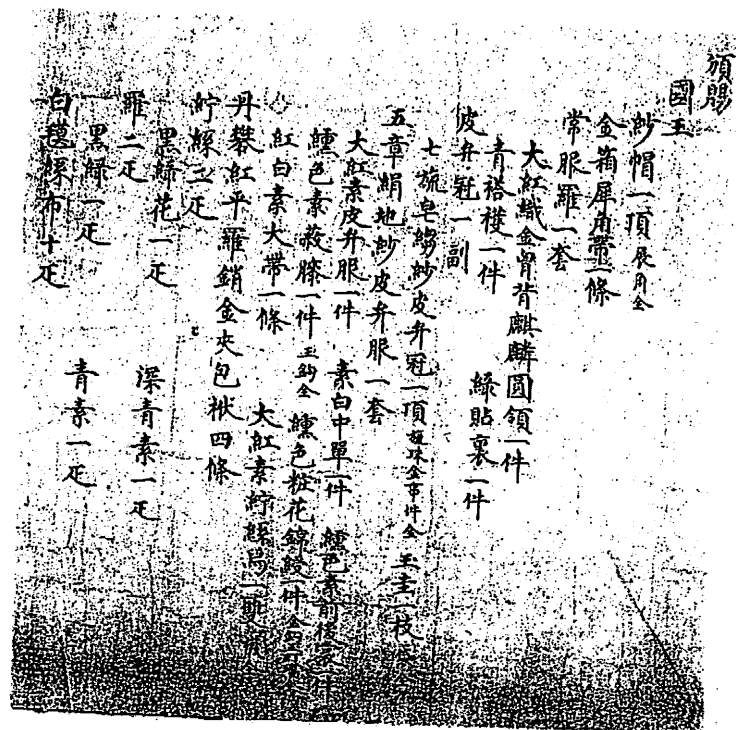 頒賜
國王
紗帽一頂展角全
金箱犀角帶一條
常服羅一套
大紅織金胷背麒麟圓領一件
青褡𧞤一件 綠貼裏一件
皮弁冠一副
七旒皂縐紗皮弁冠一頂旒珠金事件全 玉圭一枝
五章絹地紗皮弁服一套
大紅素皮弁服一件 素白中單一件 纁色素前後裳一件
纁色素蔽膝一件玉鈎全 纁色粧花錦綬一件
紅白素大帶一條 大紅素紵絲舄一雙
丹礬紅平羅銷金夾包袱四條
紵絲二疋
黑綠花一疋 深青素一疋
羅二疋
黑綠一疋 青素一疋
白氁絲布十疋